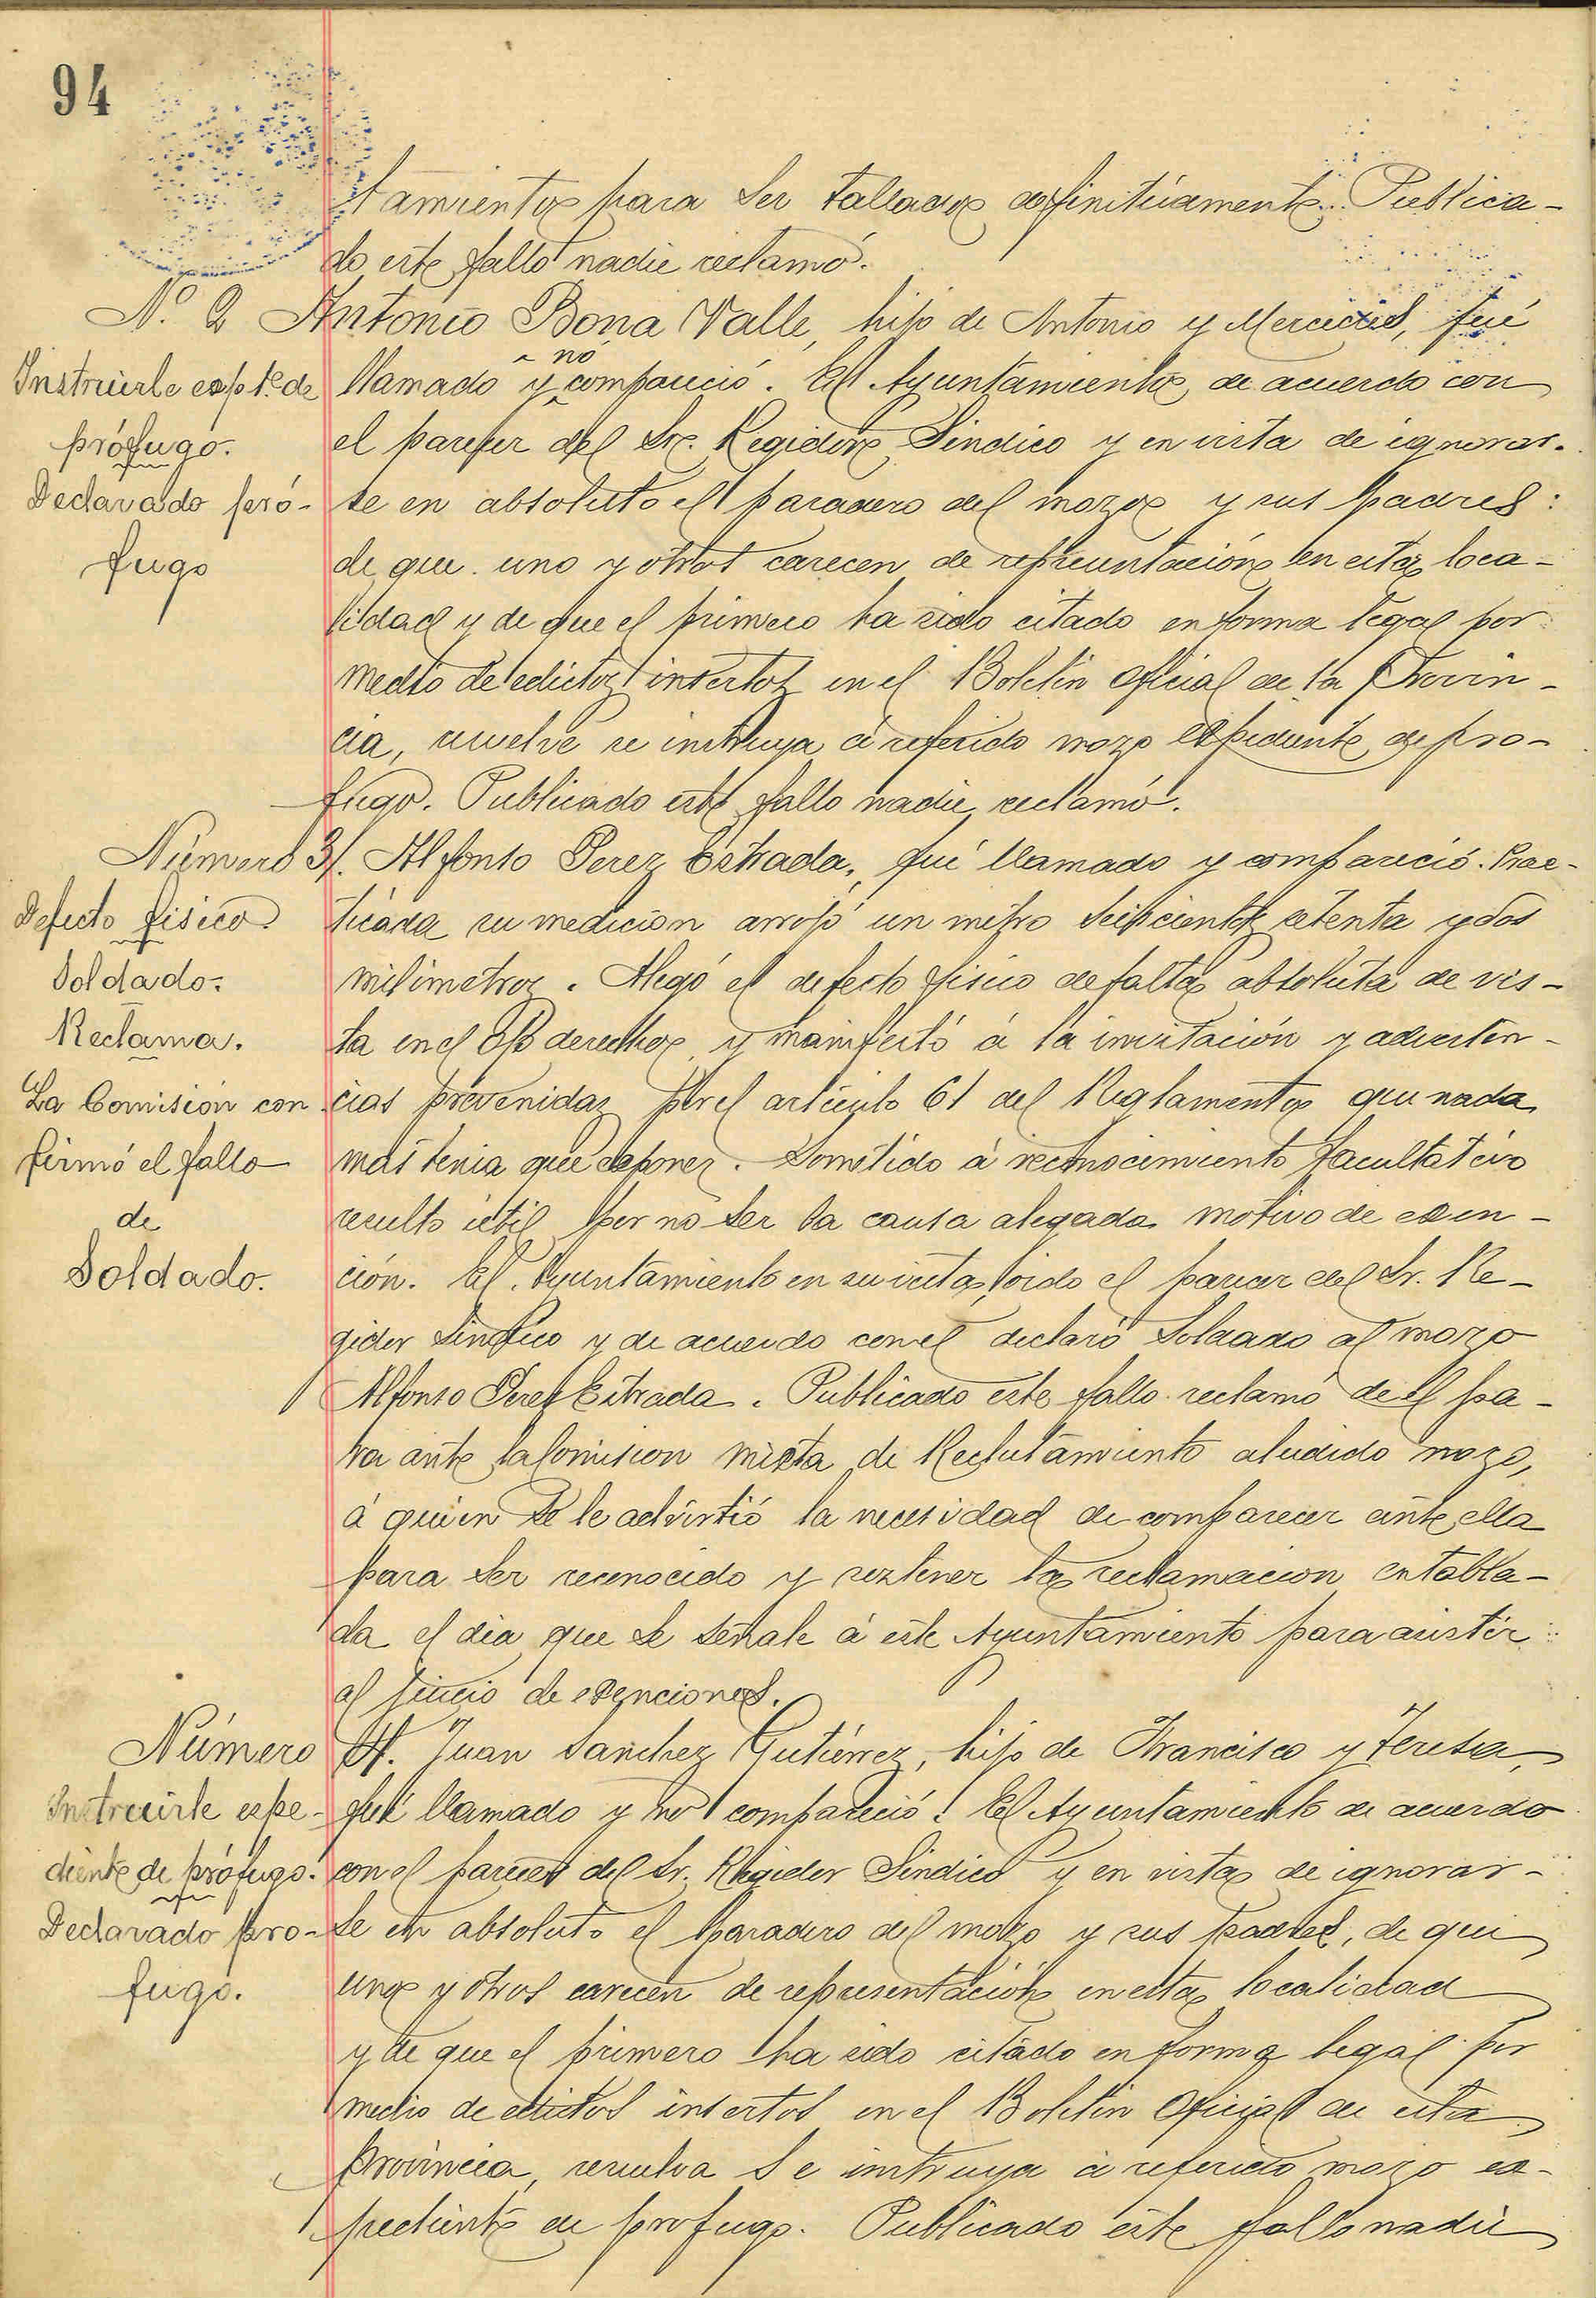 94
tamiento para ser tallado definitivamente. Publica-
do este fallo nadie reclamó.
N.º 2 Antonio Bona Valle, hijo de Antonio y Mercedes, fué
llamado y no compareció. El Ayuntamiento, de acuerdo con
el parecer del Sr. Regidor Sindico y en vista de ignorar-
se en absoluto el paradero del mozo y sus padres:
de que uno y otros carecen de representación en esta loca-
lidad y de que el primero ha sido citado en forma legal por
medio de edictos insertos en el Boletin oficial de la Provin-
cia, resuelve se instruya á referido mozo expediente de pro-
fugo. Publicado este fallo nadie reclamó.
Instruirle exp te. de
prófugo.
Declarado pró-
fugo
Número 3/. Alfonso Perez Estrada, fué llamado y compareció. Prac-
ticada su medicion arrojó un metro seiscientos setenta y dos
milimetros. Alegó el defecto fisico de falta absoluta de vis-
ta en el ojo derecho y manifestó á la invitación y adverten-
cias prevenidas por el artículo 61 del Reglamento que nada
mas tenia que esponer. Sometido á reconocimiento facultativo
resultó útil por no ser la causa alegada motivo de exen-
ción. El Ayuntamiento en su vista, oido el parecer del Sr. Re-
gidor Sindico y de acuerdo con el declaró Soldado al mozo
Alfonso Perez Estrada. Publicado este fallo reclamó de el pa-
ra ante la Comision mixta de Reclutamiento aludido mozo,
á quien se le advirtió la necesidad de comparecer ante ella
para ser reconocido y sostener la reclamacion entabla-
da el dia que se señale á este Ayuntamiento para asistir
al juicio de exenciones.
Defecto fisico
Soldado.
Reclama.
La Comisión con
firmó el fallo
de
Soldado.
Número 4. Juan Sanchez Gutiérrez, hijo de Francisco y Teresa,
fué llamado y no compareció. El Ayuntamiento de acuerdo
con el parecer del Sr. Regidor Sindico y en vista de ignorar-
se en absoluto el paradero del mozo y sus padres, de que
uno y otros carecen de representación en esta localidad
y de que el primero ha sido citado en forma legal por
medio de edictos insertos en el Boletin Oficial de esta
provincia, resuelva se instruya á referido mozo ex-
pediente de profugo. Publicado este fallo nadie
Instruirle expe-
diente de prófugo.
Declarado pro-
fugo.